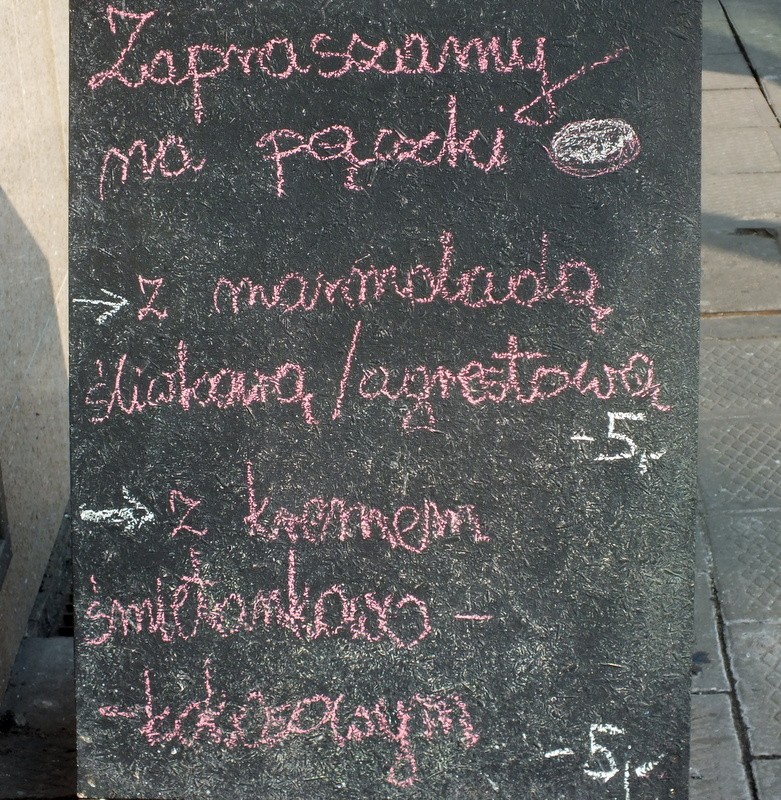 Zapraszamy
na pączki
→ z marmoladą
śliwkową / agrestową
-5,-
→ z kremem
śmietankowo -
-kokosowym
-5,-